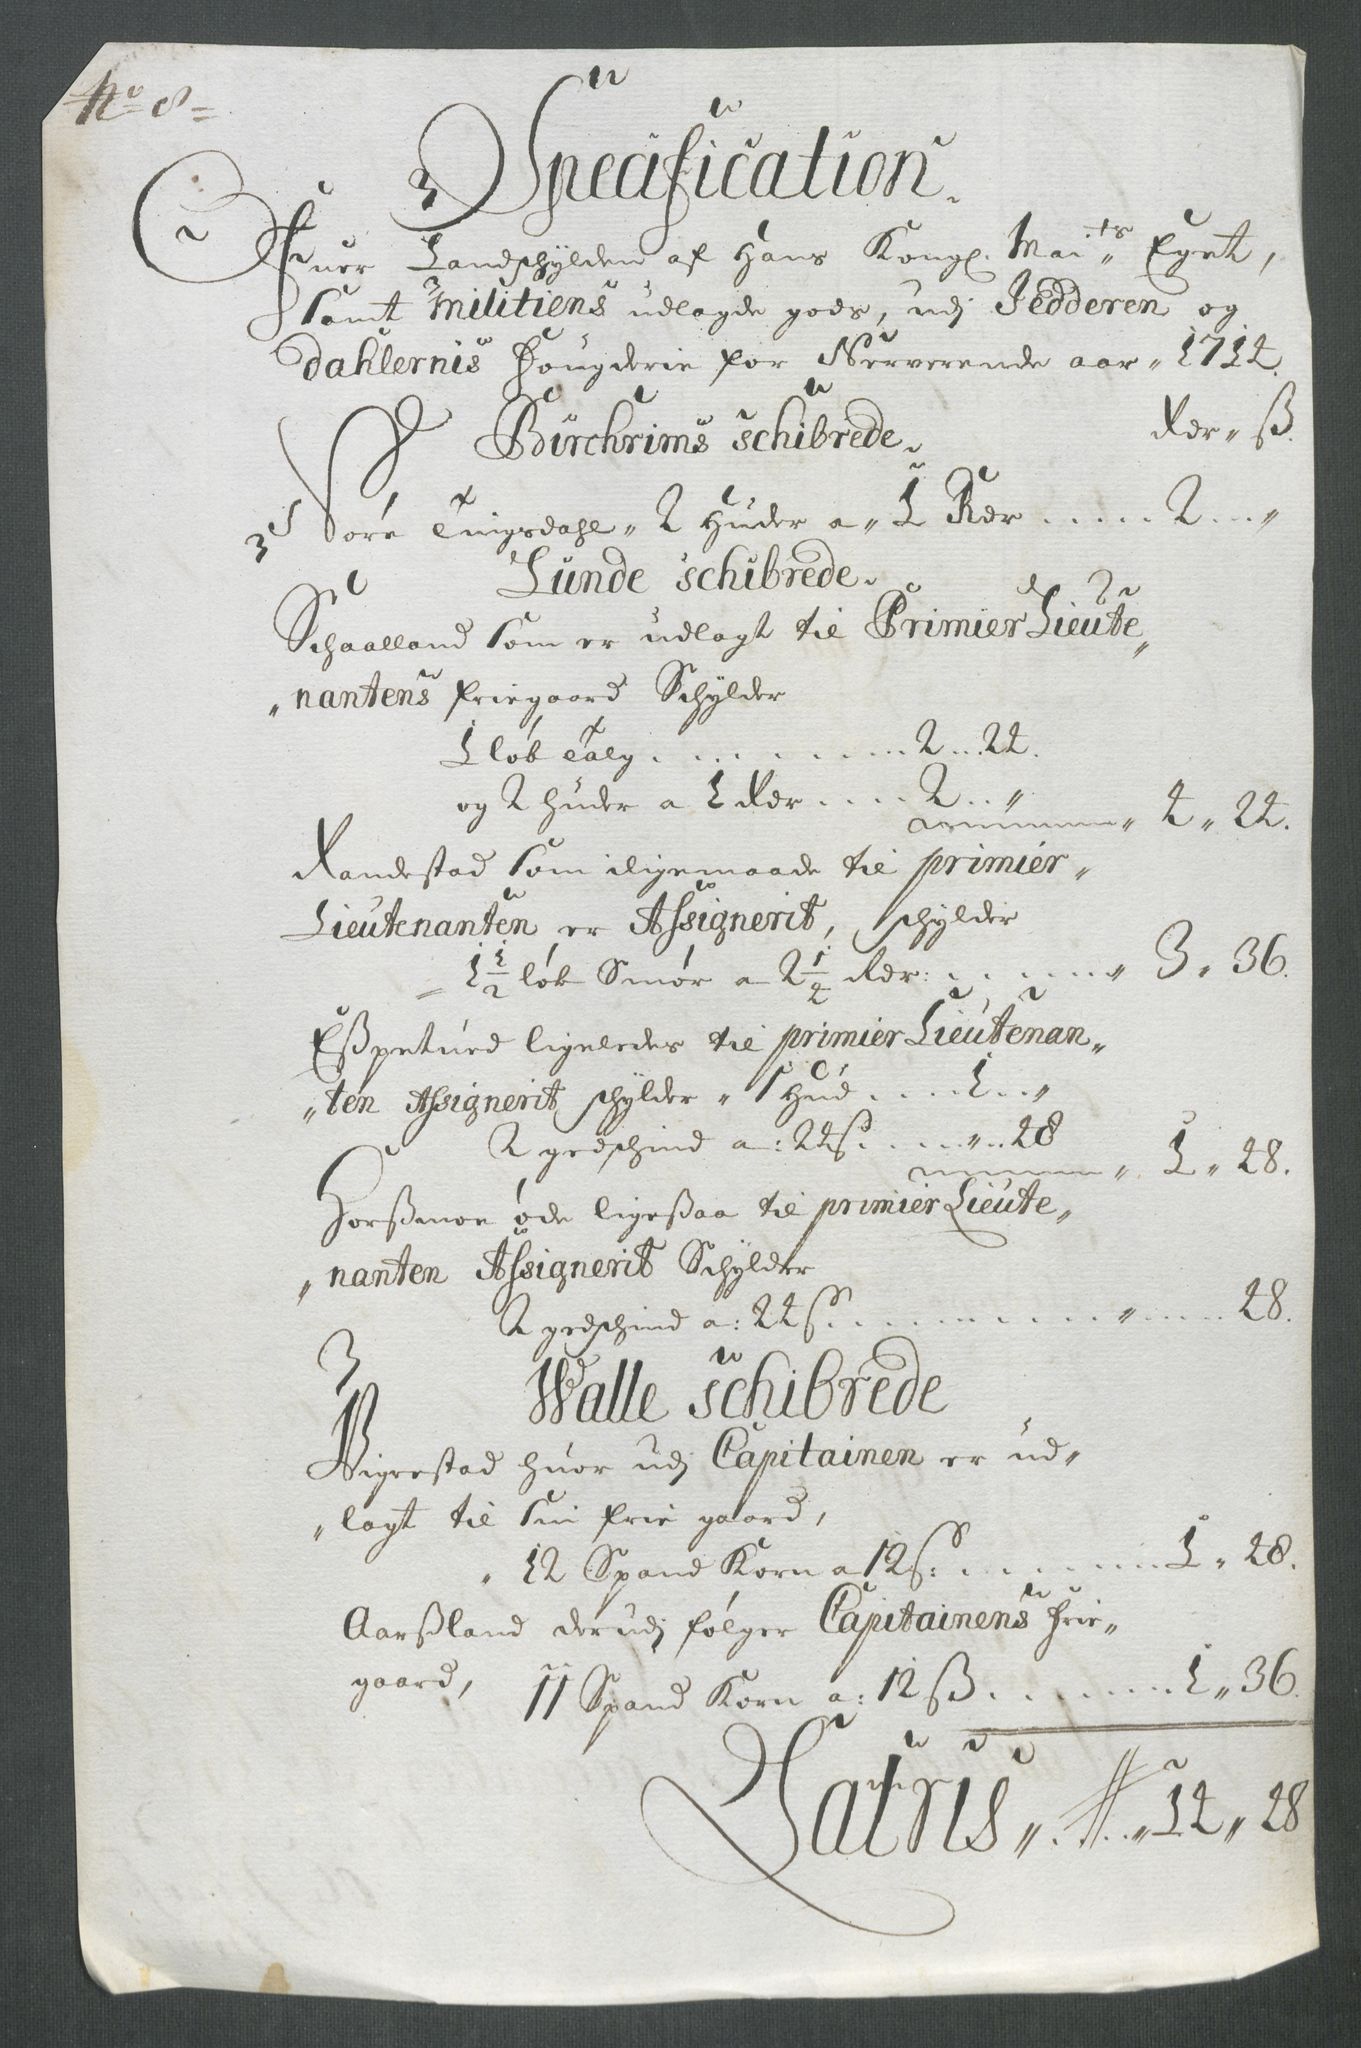 No 8=
Specification
Ofuer Landschylden af Hans Kongl. Maits Eget,
samt Militiens udlagde gods, udj Jedderen og
Dahlernis fougderie for Nerverende aar 1714.
Birchrims schibrede. Rdr ß.
Tingsdahl 2 Huder a 1 Rdr ..... 2 ... "
Lunde schibrede.
Schaalland som er udlagt til Primier Lieute„
„nantens friegaard Schylder
1 løb talg ......... 2 ... 24.
og 2 huder a 1 Rdr .... 2 ... " 4 " 24.
som iligemaade til primier„
Lieutenanten er Assignerit, schylder
1 1/2 løb Smør a 2 1/4 Rdr: ...... 3 " 36.
ligeledes til primier Lieutenan„
„ten Assignerit schylder „ 1 Hud .... 1 ... "
2 gedschind a: 24 s. .... " .. 48 1 " 48.
øde ligeßaa til primier Lieute„
„nanten Assignerit Schylder
2 gedschind a: 24 s. .......... " ..... 48.
Walle schibrede
Vigrestad huor udj Capitainen er ud„
„lagt til sin frie gaard,
12 Spand Korn a 12 s: ........ 1 " 48.
Aarßland der udj følger Capitainens frie„
gaard, 11 Spand Korn a: 12 ß ....... 1 " 36.
Latris „ .. „ 14 „ 48